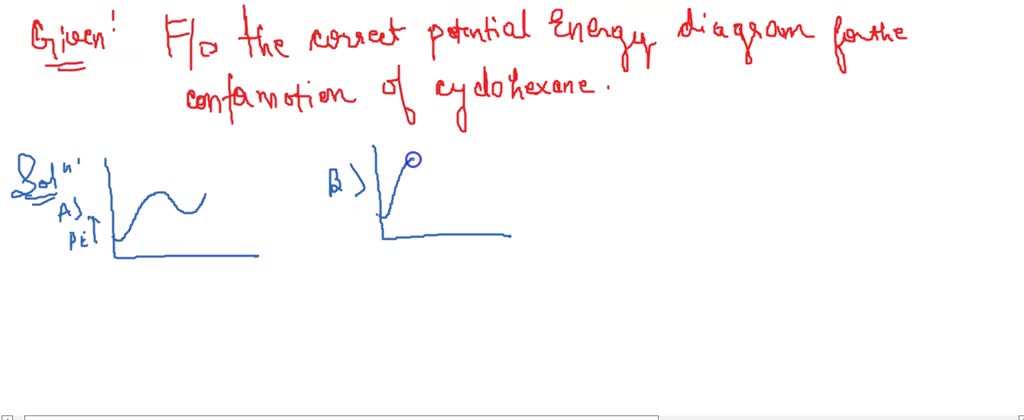 Given: F/o the correct potential Energy diagram for the
confamotion of cyclohexane.
Soln:
A)
PE↑
B)